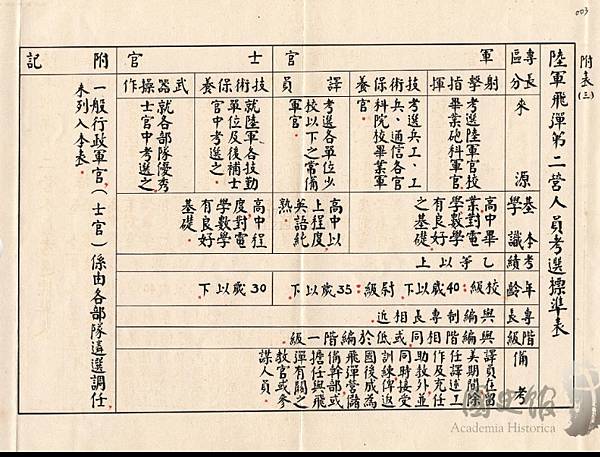 003
附表(三)
陸軍飛彈第二營人員考選標準表
專長區分
來源
基本學識
考績
年齡
專長
階級
備考
軍官
射擊指揮
考選陸軍官校
畢業砲科軍官
高中畢
業對電
學數學
有良好
之基礎
技術保養
考選兵工、工
兵、通信各官
科院校畢業軍
官
譯員
考選各單位少
校以下之常備
軍官
高中以
上程度
英語純
熟
士官
技術保養
就陸軍各技勤
單位及後補士
官中考選之
高中程
度對電
學數學
有良好
基礎
武器操作
就各部隊優秀
士官中考選之
乙等以上
校級:40歲以下 尉級:35歲以下
30歲以下
與編制專長相近
與編階相同或低於編階一級
譯員在留
美期間除
任譯述工
作及充任
助教外並
同時接受
訓練俾返
國後成為
飛彈營儲
備幹部或
擔任與飛
彈有關之
教官或參
謀人員
附記
一般行政軍官(士官)係由各部隊遴選調任
未列入本表。
國史館
Academia Historica